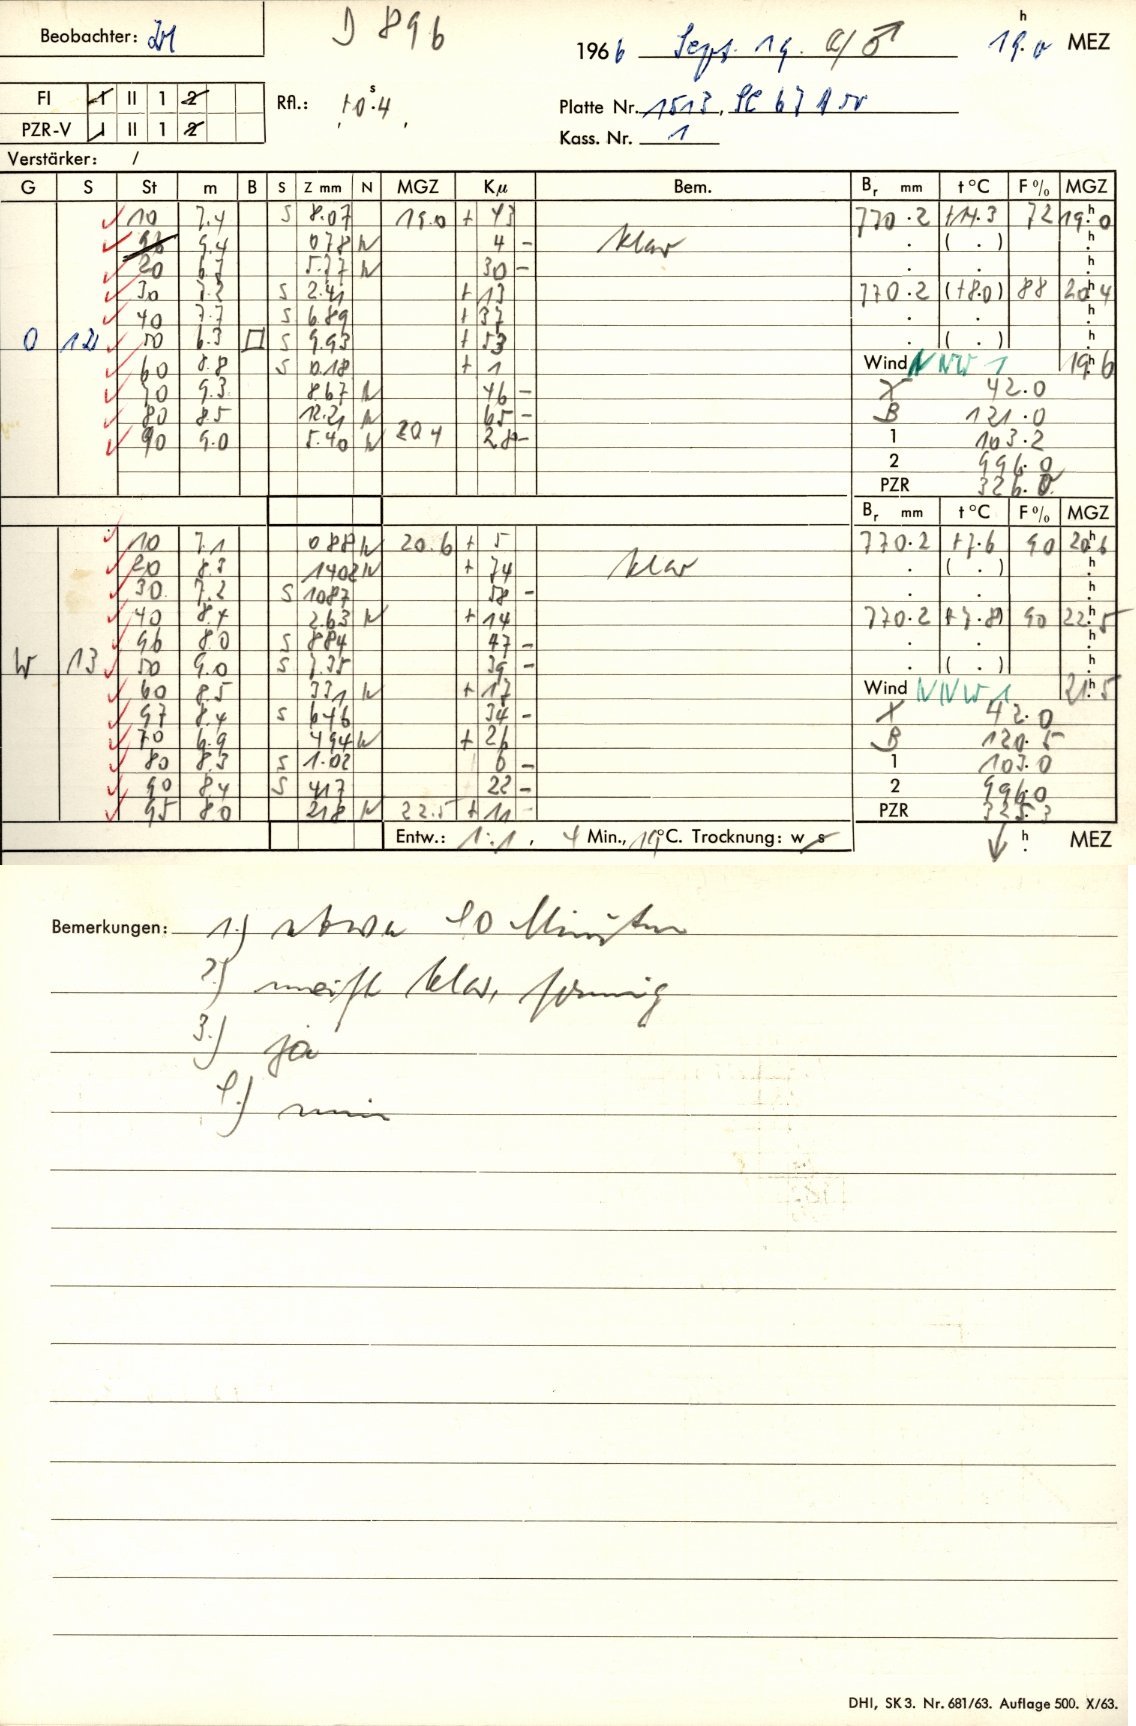 D 896
Beobachter:
1966 Sept. 19. 19.0 h MEZ
FI I II 1 2
Rfl.: +0.4 s
Platte Nr. 1513,
PZR-V I II 1 2
Kass. Nr. 1
Verstärker: /
G S St m B S Z mm N MGZ Kμ Bem. Br mm t °C F % MGZ
10 7.4 S 8.07 19.0 + 43 770.2 +14.3 72 19.0 h
96 9.4 078 N 4 - klar . ( . ) h
20 6.7 5.77 N 30 - . . h
30 7.2 S 2.41 + 13 770.2 (+8.0) 88 20.4 h
40 7.7 S 6.89 + 37 . . h
O 12 50 6.3 □ S 9.93 + 53 . ( . ) h
60 8.8 S 0.18 + 1 Wind NNW 1 19.6 h
70 9.3 8.67 N 46 - X 42.0
80 8.5 12.21 N 65 - B 121.0
90 9.0 5.40 N 20 4 28 - 1 103.2
2 996.0
PZR 326.0
Br mm t °C F % MGZ
10 7.1 088 N 20.6 + 5 770.2 +7.6 90 20.6 h
20 8.3 1402 N + 74 klar . ( . ) h
30 7.2 S 1087 58 - . . h
40 8.4 2.63 N + 14 770.2 +7.8) 90 22.5 h
96 8.0 S 884 47 - . . h
W 13 50 9.0 S 7.35 39 - . ( . ) h
60 8.5 331 N + 17 Wind NNW 1 21.5 h
97 8.4 S 646 34 - X 42.0
70 6.9 494 N + 26 B 120.5
80 8.3 S 1.02 6 - 1 103.0
90 8.4 S 417 22 - 2 996.0
95 8.0 218 N 22.5 + 11 PZR 325.3
Entw.: 1:1, 4 Min., 19°C. Trocknung: w s h MEZ
Bemerkungen: 1.) etwa 10 Minuten
2.) meist klar,
3.) ja
4.) nein
DHI, SK 3. Nr. 681/63. Auflage 500. X/63.